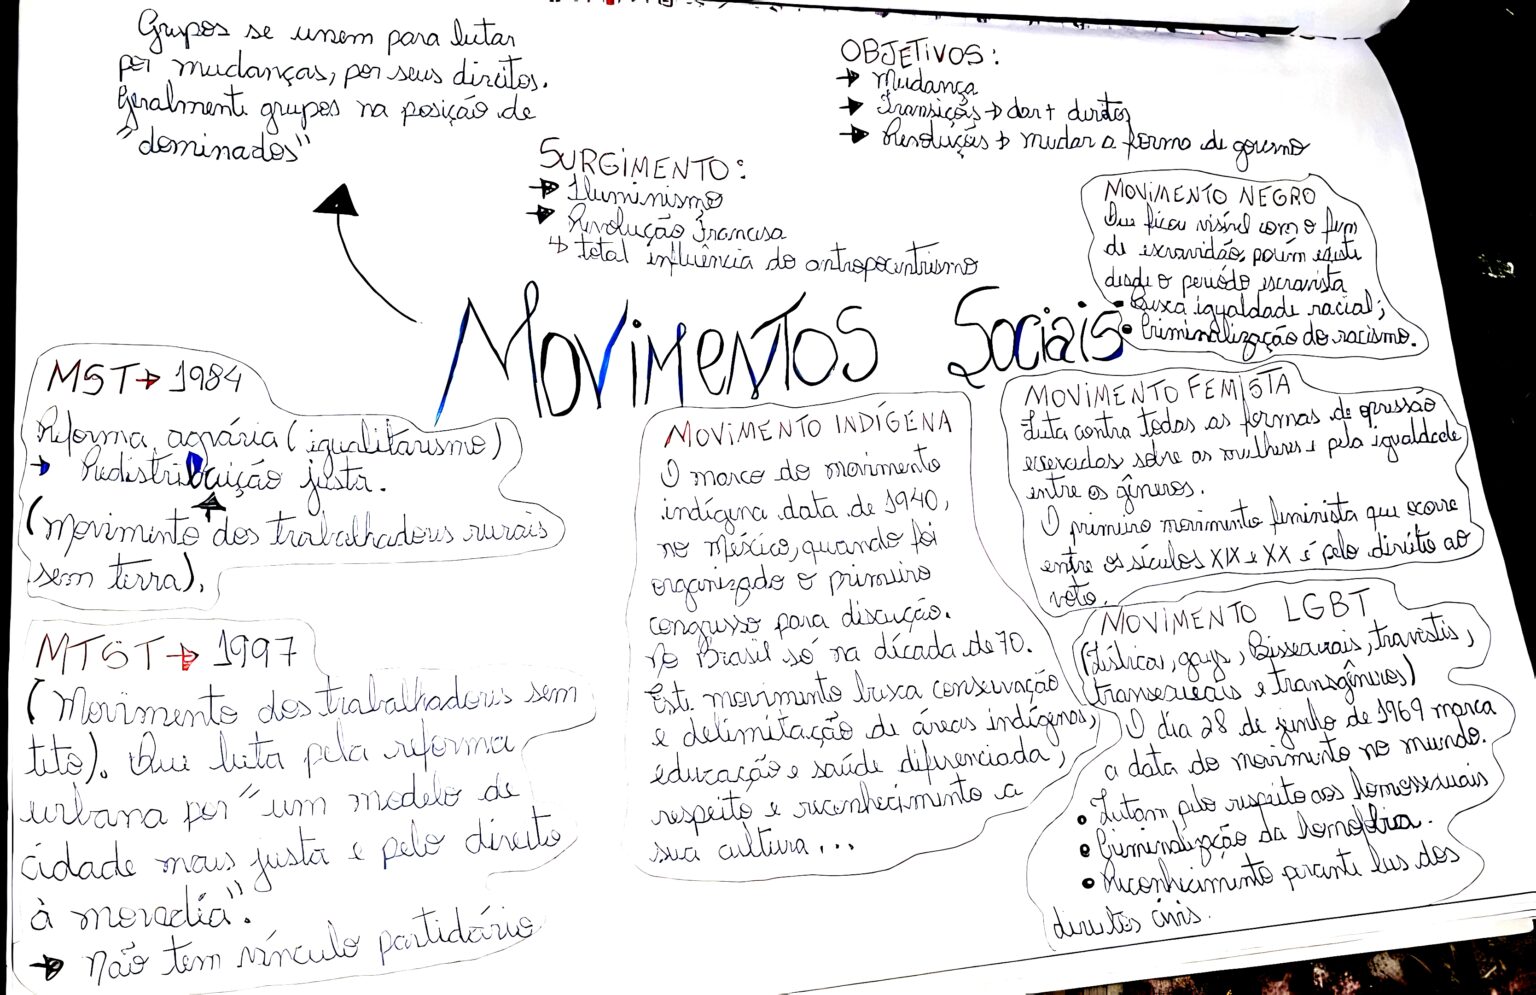 Grupos se unem para lutar
por mudanças, por seus direitos.
Geralmente grupos na posição de
"dominados"
OBJETIVOS:
→ Mudança
→ Transições → dar + direitos
→ Revoluções → mudar a forma de governo
SURGIMENTO:
→ Iluminismo
→ Revolução Francesa
↳ total influência do antropocentrismo
Movimentos Sociais
MOVIMENTO NEGRO
Que ficou visível com o fim
de escravidão, porém existe
desde o período escravista
• Busca igualdade racial;
• Criminalização do racismo.
MST → 1984
Reforma agrária (igualitarismo)
→ Redistribuição justa.
(movimento dos trabalhadores rurais
sem terra).
MTST → 1997
(Movimento dos trabalhadores sem
teto). Que luta pela reforma
urbana por "um modelo de
cidade mais justa e pelo direito
à moradia".
→ Não tem vínculo partidário
MOVIMENTO INDÍGENA
O marco do movimento
indígena data de 1940,
no México, quando foi
organizado o primeiro
congresso para discução.
No Brasil só na década de 70.
Este movimento busca conservação
e delimitação de áreas indígenas,
educação e saúde diferenciada,
respeito e reconhecimento a
sua cultura...
MOVIMENTO FEMISTA
Luta contra todas as formas de opressão
exercidas sobre as mulheres e pela igualdade
entre os gêneros.
O primeiro movimento feminista que ocorre
entre os séculos XIX e XX é pelo direito ao
voto.
MOVIMENTO LGBT
(Lésbica, gays, Bissexuais, travestis,
transexuais e transgêneros)
O dia 28 de junho de 1969 marca
a data do movimento no mundo.
• Lutam pelo respeito aos homossexuais
• Criminalização da homofobia.
• Reconhecimento perante leis dos
direitos civis.